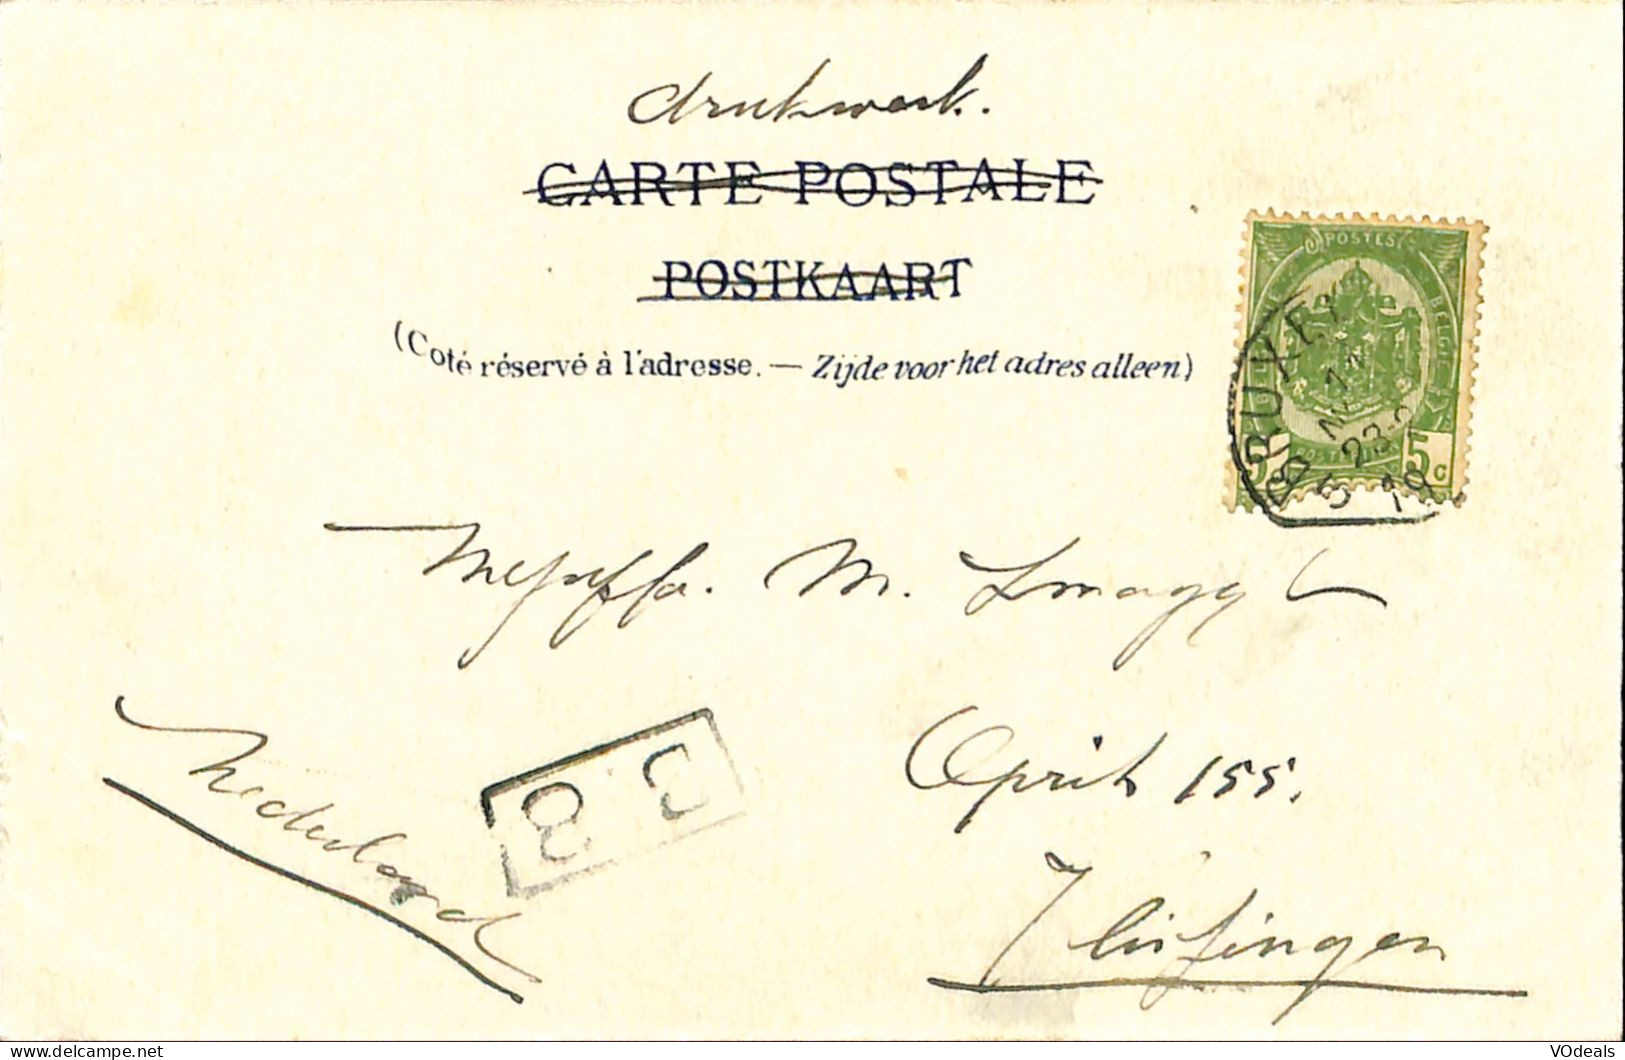 drukwerk.
CARTE POSTALE
POSTKAART
(Coté réservé à l'adresse. — Zijde voor het adres alleen)
POSTES
BELGIE
5 5 c
BRUXEL
23-
5
Mejuffr. M.
April 155.
Vlissingen
Nederland
VOdeals